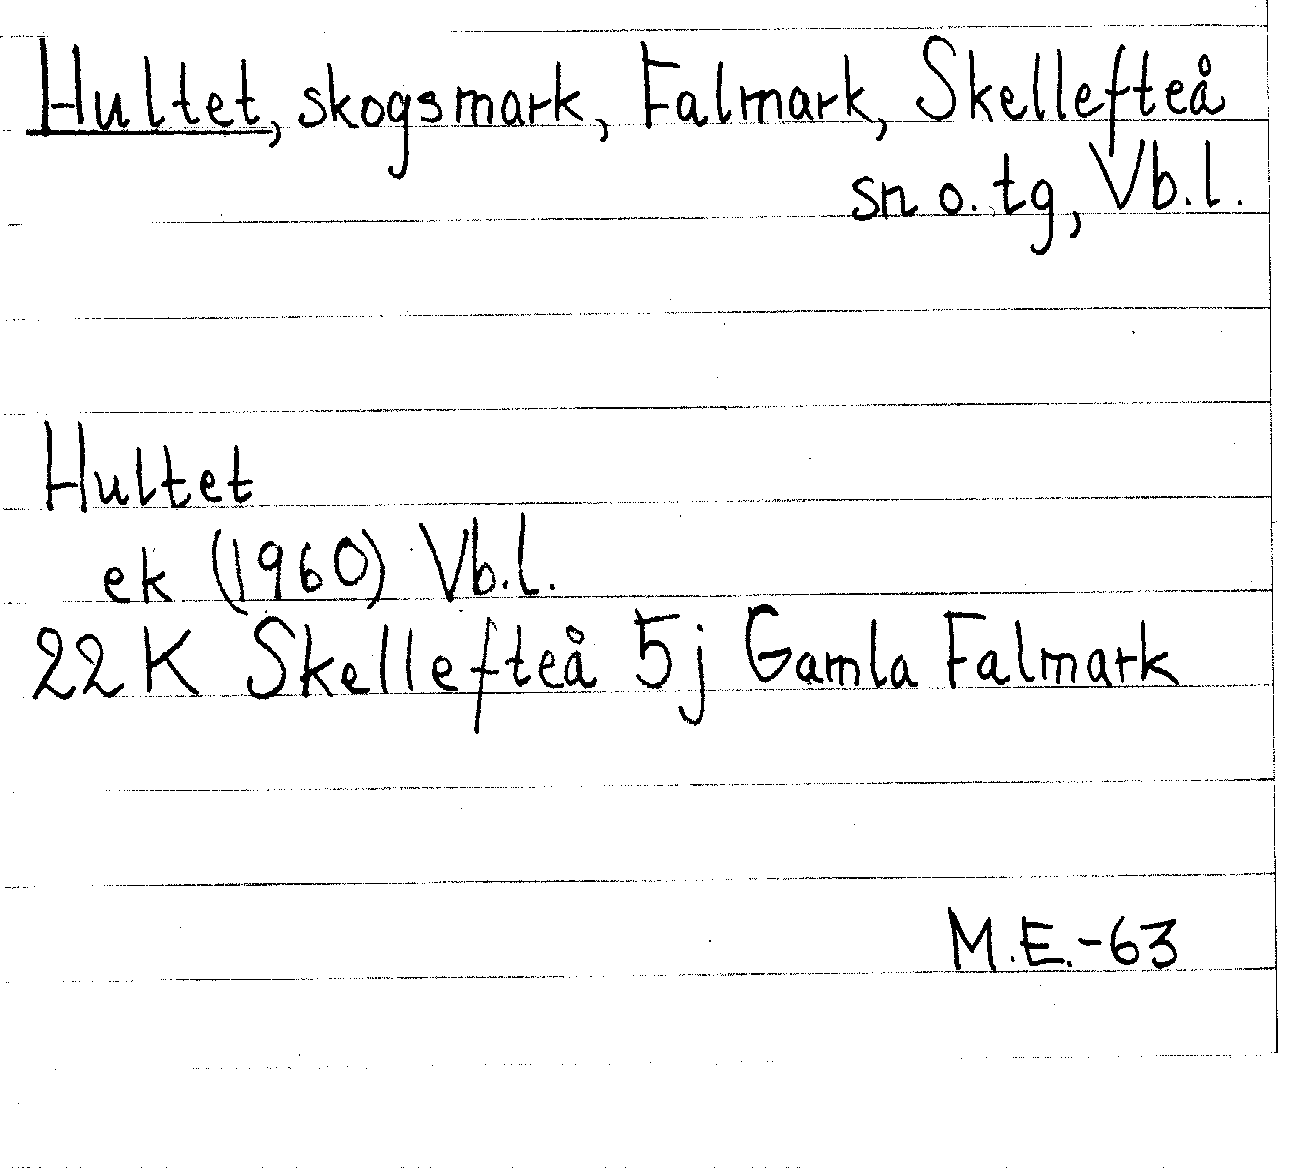 Hultet, skogsmark, Falmark, Skellefteå
sn o. tg, Vb.l.
Hultet
ek (1960) Vb.l.
22 K Skellefteå 5j Gamla Falmark
M.E.-63